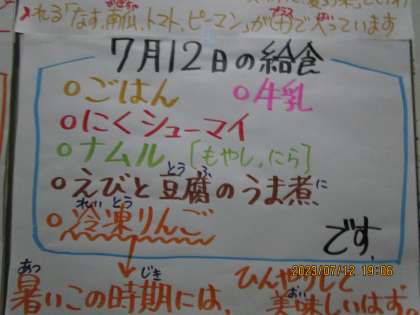 れる「なす、南瓜、トマト、ピーマン」が
入っています
7月12日の給食
○ごはん ○牛乳
○にくシューマイ
○ナムル [もやし,にら]
とうふ に
○えびと豆腐のうま煮
れいとう
○冷凍りんご
です。
あつ じき
暑いこの時期には、
ひんやりして
おい
美味しいはず。
2023/07/12 19:06